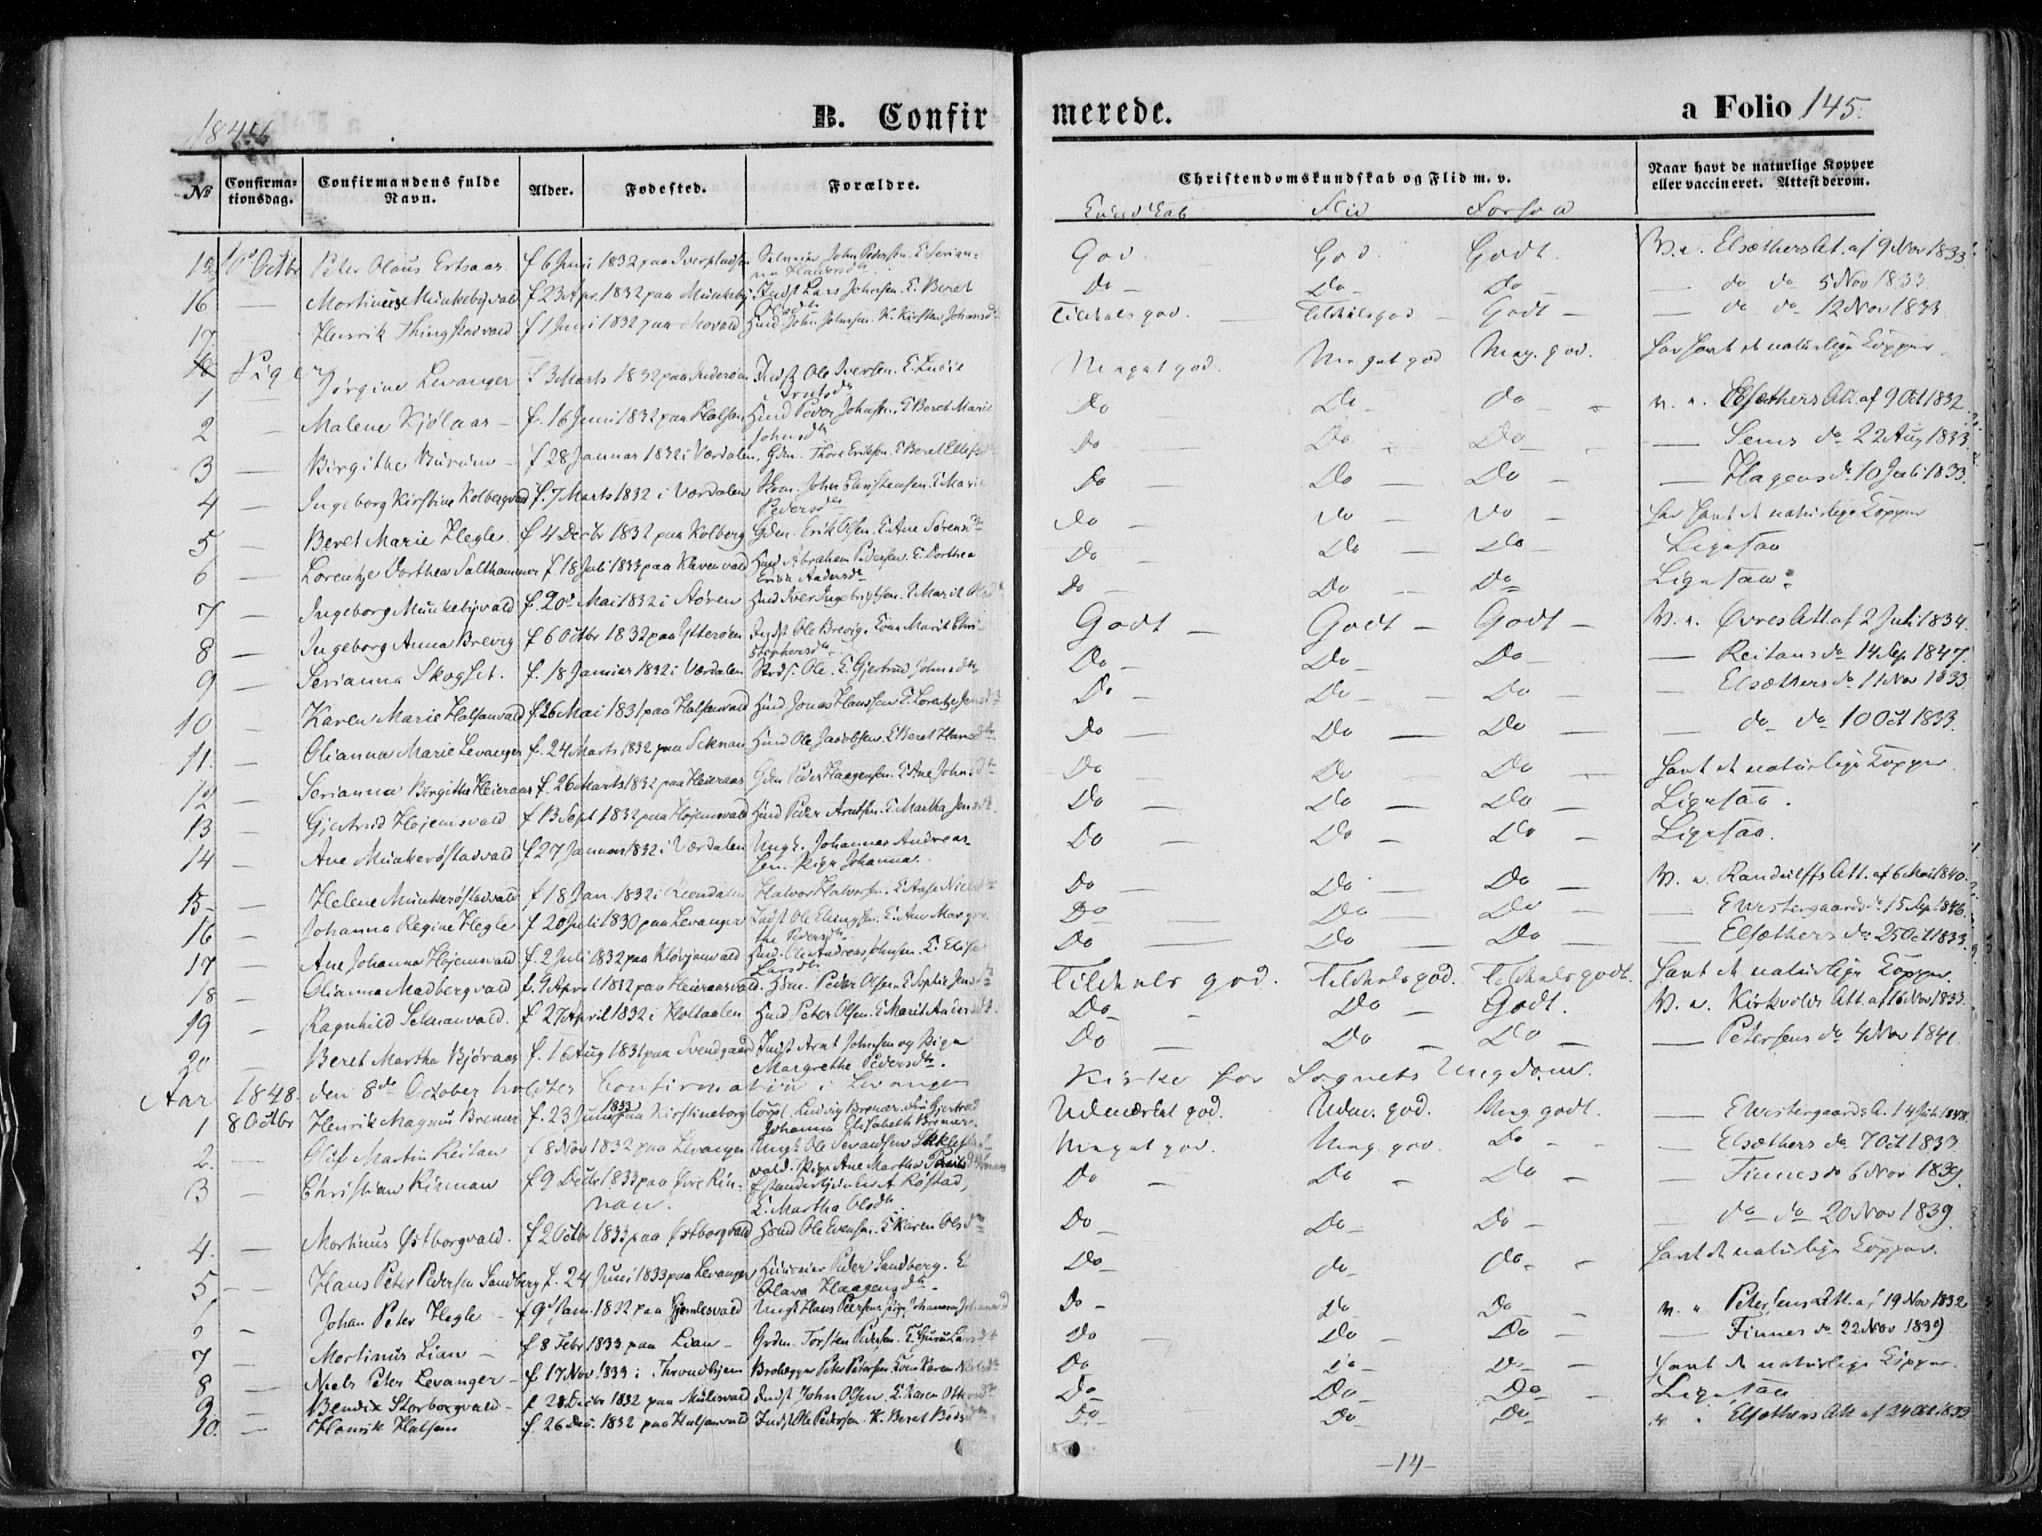 B. Confirmerede.
a Folio 145.
No Confirmationsdag. Confirmandens fulde Navn. Alder. Fødested. Forældre. Christendomskundskab og Flid m. v. Naar havt de naturlige Kopper eller vaccineret. Attest derom.
Kundskab Flid Forstand
Peter Olaus f. 6 Juni 1832 paa John Pedersen God God Godt V. a. Elsæthers Att. af 9 Nov 1833
16 — Martinus Munkebyvald f 23 Apr. 1832 paa Munkeby Indst Lars Johnsen E. Beret Do — Do — Do — — do do 5 Nov 1833
17 Henrik Thingstadvald f 1 Juni 1832 paa Movald Huud John Johnsen K. Kirsten Johansd Tildeelsgod Godt — — do do 12 Nov 1833
1 Jørgine Levanger f 3 Marts 1832 paa Inderøen Indst Ole Iversen E. Meget god. Meget god Meg. god. har havt de naturlige Kopper
2 — Malene Kjølaas — f. 16 Juni 1832 paa Halsen Huud Peder Johnsen E Beret Marie Johnsdtr Do Do — do — v. a. Elsæthers Att. af 9 Oct 1832
3 — Birgithe f 28 Januar 1832 i Værdalen, Gdm. Thore Eriksen E Beret Do — Do — Do — — Sems do 22 Aug 1833
4 — Ingeborg Kirstine Kolbergvald f. 7 Marts 1832 i Værdalen John Christensen E Marie Pedersdtr Do — Do — Do — — Hagens do 10 Juli 1833
5 — Beret Marie Hegle f 4 Decbr 1832 paa Kolberg Gdm. Erik Olsen. E Ane Sørensdtr Do — Do — Do — har havt de naturlige Kopper
6 — Lorentze Dorthea Salthammer f 18 Juli 1833 paa vald Huud Abraham Pedersen. E Dorthea Do — Do — Do — Ligesaa
7 — Ingeborg Munkebyvald f. 20 Mai 1832 i Støren Huud Iver Ingebrigtsen. E Marit Do — Do — Do — Ligesaa
8 — Ingeborg Anna Brevig f 6 Octbr 1832 paa Ytterøen Indst Ole Brevig. Kone Marit Christophersdtr Godt — Godt — Godt — V. a. Øvres Att af 2 Juli 1834
9 — Serianna Skogset. f. 18 Januar 1832 i Værdalen Ole. E Gjertrud Johnsdtr Do — Do — Do — — Reitans do 14 Sep 1847
10 — Karen Marie Halsanvald f 26 Mai 1831 paa Halsanvald Huud Jonas Hanssen E. Lorentze Do — Do — Do — — Elsæthers do 11 Nov 1833
11. — Olianna Marie Levanger f. 24 Marts 1832 paa Seknan Huud Ole Jacobsen E Beret Do — Do — Do — — do do 10 Oct 1833.
12 — Serianna Birgithe Heieraas f. 26 Marts 1832 paa Heieraas Gdm Peder Haagensen. E Ane Johnsdtr Do — Do — Do — havt de naturlige Kopper
13 — Gjertrud Højemsvald f 13 Sept 1832 paa Højemsvald Huud Peder Arntsen. E Martha Do — Do — Do — Ligesaa.
14 — Ane Munkerøstadvald f 27 Januar 1832 i Værdalen Ungk. Johannes Andreassen. Pige Johanna. Do — Do — Do — Ligesaa.
15 — Helene Munkerøstadvald f 18 Jan 1832 i Halvor Halvorsen. E Do — Do — Do — V. a. Randulffs Att. af 6 Mai 1840
16 — Johanna Regine Hegle f 20 Juli 1830 paa Levanger Indst Ole Ellingsen. E. Ane Margrethe Pedersdtr. Do — Do — Do — — E Westergaards do 15 Sep 1846
17 — Ane Johanna Højemsvald f. 2 Juli 1832 paa Kløvjanvald Huud. Ole Andreas Johnsen. E. Elise Larsdtr Do — Do — Do — — Elsæthers do 25 Oct 1833
18 — Olianna Madbergvald f. 9 April 1832 paa Heieraasvald. Huud. Peder Olsen. E Sophie Tildeels god. Tildeelsgod. Tildeelsgodt. havt de naturlige Kopper
19 — Ragnhild Seknanvald. f. 27 April 1832 i Holtaalen Huud Peter Olsen. E Marit Do — Do — Godt. V. a. Kirkvolds Att. af 16 Nov 1833
20 — Beret Martha Bjøraas f. 16 Aug 1831 paa Svendgaard Indst Arnt Johnsen og Pige Margrethe Pedersdtr. Do — Do — Do — — Petersens do 4 Nov 1841
Aar 1848. den 8de October holdtes Confirmation i Levanger Kirke for Sognets Ungdom.
1 8 Octbr Henrik Magnus Bremer f. 23 Juni 1833 paa Kirstineborg Ludvig Bremer. Fru Gjertrud Johanna Elisabeth Bremer. Udmærket god. Udm. god. Meg godt. — E Westergaards A. 14 1848
2. — Oluf Martin Reitan f 8 Nov 1832 paa Levanger Ungk Ole Sevaldsen vald. Pige Ane Martha Meget god. Meg. god. Do — — Elsæthers do 7 Oct 1833
3 — Christian Rinnan f 9 Decbr 1833 paa øvre Rinnan. A Røstad, E. Martha Olsdtr. Do — Do — Do — — Finnes do 6 Nov 1839.
4. — Martinus Østborgvald. f 2 Octbr 1833 paa Østborgvald Huud Ole Evensen. E Karen Olsdtr Do — Do — Do — — do do 20 Nov 1839.
5 — Hans Peter Pedersen Sandberg f. 24 Juni 1833 paa Levanger Peder Sandberg. E Olava Haagensdtr. Do — do — do — havt de naturlige Kopper.
— Johan Peter Hegle — f 9 Jann. 1832 paa Hjemlesvald Ungk Hans Do — do — Do — v. a Petersens Att. af 19 Nov 1832
7 — Martinus Lian — f 8 Febr 1833 paa Lian — Grdm. Torsten Pedersen. E Guru Do Do — Do — — Finnes do 22 Nov 1839
8 — Niels Peter Levanger — f 17 Nov. 1833 i Throndhjem Brolægger Peter Petersen Kone Karen Do do — Do — havt de naturlige Kopper.
9 — Bendix Storborgvald — f 28 Decbr 1832 paa Mulisvald Indst John Olsen. E Karen Do — Do — Do — Ligesaa
10. Henrik Halsan f. 26 Dec. 1832 paa Halsanvald Indst Ole Pedersen. K. Beret Do — Do — Do — v. a. Elsæthers Att af 24 Oct 1833
-14-